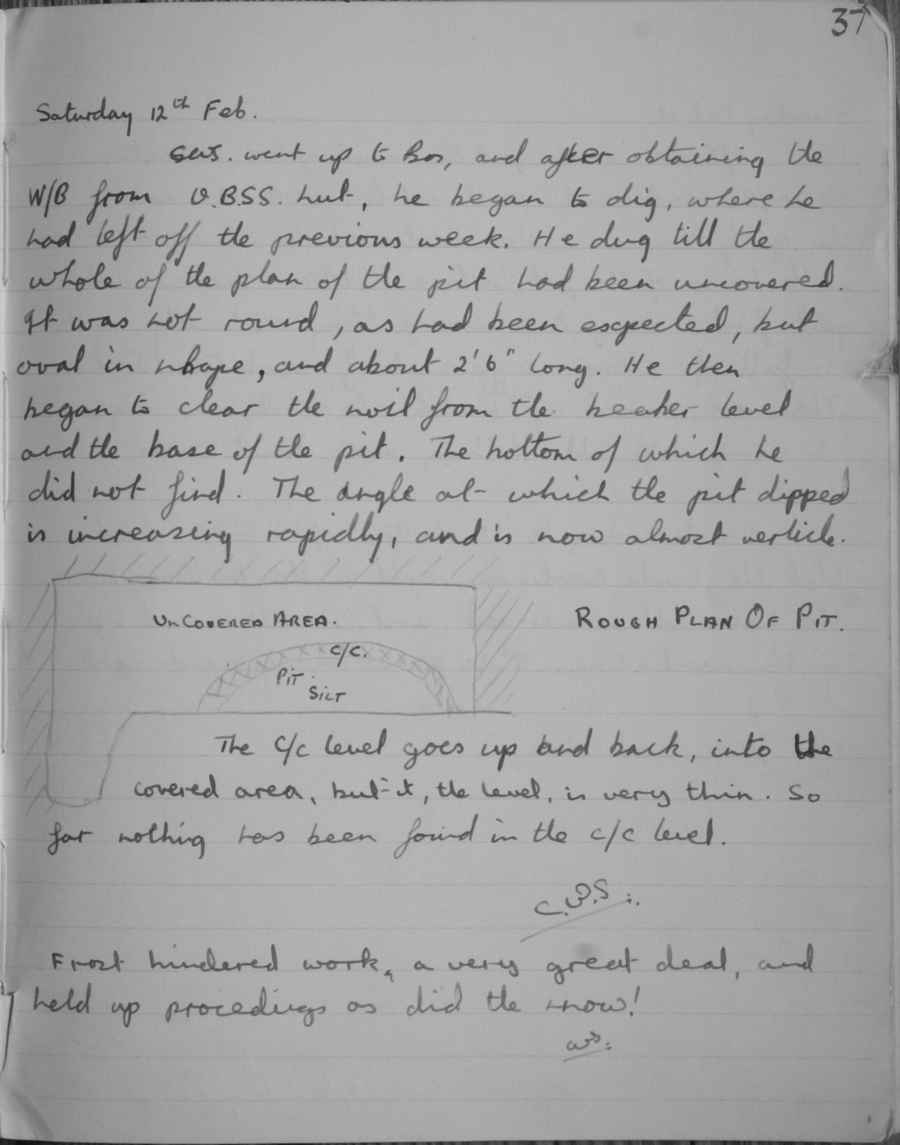 37
Saturday 12th Feb.
went up to Bos, and after obtaining the
W/B from O.B.S.S. hut, he began to dig, where he
had left off the previous week. He dug till the
whole of the plan of the pit had been uncovered.
It was not round, as had been expected, but
oval in shape, and about 2' 6" long. He then
began to clear the soil from the heaker level
and the base of the pit. The bottom of which he
did not find. The angle at which the pit dipped
is increasing rapidly, and is now almost verticle.
UnCOVERED AREA.
ROUGH PLAN OF PIT.
C/C.
PIT.
SILT
The C/C level goes up and back, into the
covered area, but it, the level, is very thin. So
far nothing has been found in the c/c level.
C.W.S.
Frost hindered work, a very great deal, and
held up procedings as did the snow!